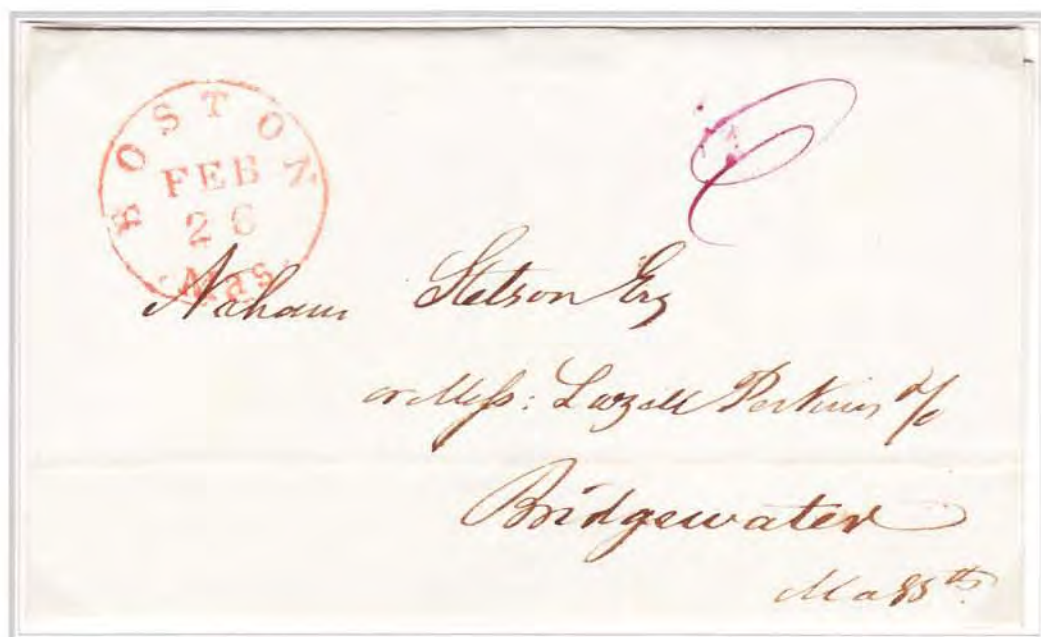 BOSTON
FEB
26
Mas.
6
Naham Stetson Esq
or Mess: Lazell Perkins &/Co
Bridgewater
Massts.